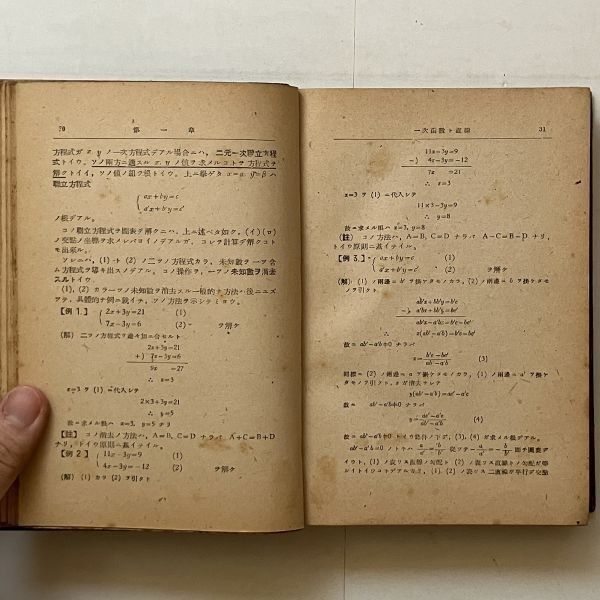 70 第一章
方程式ガ x, y ノ一次方程式デアル場合ニハ、二元一次聯立方程
式トイウ。ソノ両方ニ適スル x, y ノ値ヲ求メルコトヲ方程式ヲ
解クトイイ、ソノ値ノ組ヲ根トイウ。上ニ擧ゲタ x=α, y=β ハ
聯立方程式
ax+by=c
a'x+b'y=c'
ノ根デアル。
コノ聯立方程式ヲ圖表デ解クニハ、上ニ述ベタ如ク、(イ)(ロ)
ノ交點ノ坐標ヲ求メレバヨイノデアルガ、コレヲ計算デ解クコト
モ出來ル。
ソレニハ、(1) ト (2) ノ二ツノ方程式カラ、未知數ヲ一ツ含
ム方程式ヲ導キ出スノデアル。コノ操作ヲ、一ツノ未知數ヲ消去
スルトイウ。
(1), (2) カラ一ツノ未知數ヲ消去スル一般的ナ方法ハ後ニユズ
ッテ、具體的ナ例ニ就イテ、ソノ方法ヲ示シテミヨウ。
【例 1.】 2x+3y=21 (1)
7x-3y=6 (2) ヲ解ケ
(解) 二ツノ方程式ヲ邊々加ニ合セルト
2x+3y=21
+) 7x-3y=6
9x =27
∴ x=3
x=3 ヲ (1) ニ代入シテ
2×3+3y=21
∴ y=5
故ニ求メル根ハ x=3, y=5 ナリ
【註】 コノ消去ノ方法ハ、A=B, C=D ナラバ A+C=B+D
ナリ、トイウ原則ニ基イテイル。
【例 2.】 11x-3y=9 (1)
4x-3y=-12 (2) ヲ解ケ
(解) (1) カラ (2) ヲ引クト
一次函數ト直線 31
11x-3y=9
-) 4x-3y=-12
7x =21
∴ x=3
x=3 ヲ (1) ニ代入シテ
11×3-3y=9
∴ y=8
故ニ求メル組ハ x=3, y=8
(註) コノ方法ハ、A=B, C=D ナラバ A-C=B-D ナリ、
トイウ原則ニ基イテイル。
【例 3.】 ax+by=c (1)
a'x+b'y=c' (2) ヲ解ケ
(解) (1) ノ兩邊ニ b' ヲ掛ケタモノカラ、(2) ノ兩邊ニ b ヲ掛ケタモ
ノヲ引クト
ab'x+bb'y=b'c
-) a'bx+bb'y=bc'
ab'x-a'bx=b'c-bc'
∴ x(ab'-a'b)=b'c-bc'
故ニ ab'-a'b≠0 ナラバ
x=b'c-bc'/ab'-a'b (3)
同樣ニ (2) ノ兩邊ニ a ヲ掛ケタモノカラ、(1) ノ兩邊ニ a' ヲ掛ケ
タモノヲ引クト、x ガ消去サレテ
y(ab'-a'b)=ac'-a'c
故ニ ab'-a'b≠0 ナラバ
y=ac'-a'c/ab'-a'b (4)
故ニ ab'-a'b≠0 トイウ條件ノ下デ、(3), (4) ガ求メル根デアル。
ab'-a'b=0 ノトキハ a/a'=b/b' 從ツテ -a/b=-a'/b' 即チ圖表デ
イウト、(1) ノ表ワス直線ノ勾配ト (2) ノ表ワス直線トノ勾配ガ等
シイトイウコトデアルカラ、(1), (2) ノ表ワス二直線ガ平行デ交點